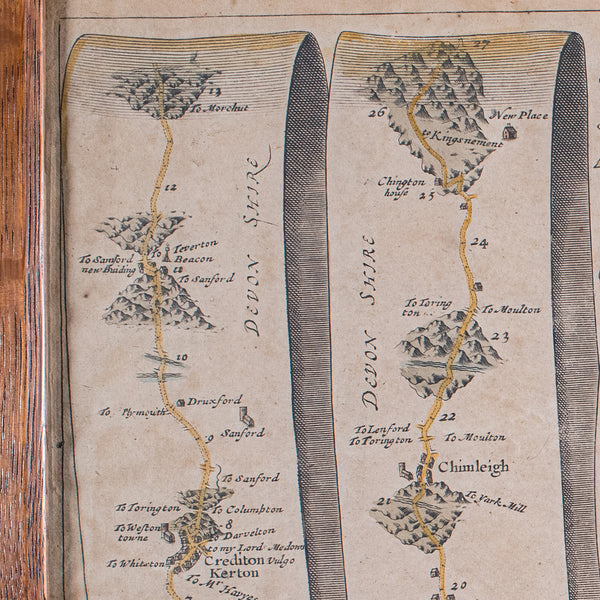 13
To Morchut
12
DEVON SHIRE
To Teverton
Beacon
To Samford
new Buiding
11
To Sanford
10
Druxford
To Plymouth
Sanford
9
To Sanford
To Torington
To Columbton
8
To Weston
towne
To Darvelton
to my Lord Medows
To Whitston
Crediton Vulgo
Kerton
27
26
New Place
to Kingsnement
Chington
house
25
24
DEVON SHIRE
To Toring
ton
To Moulton
23
22
To Lenford
To Torington
To Moulton
Chimleigh
21
To Park Mill
20